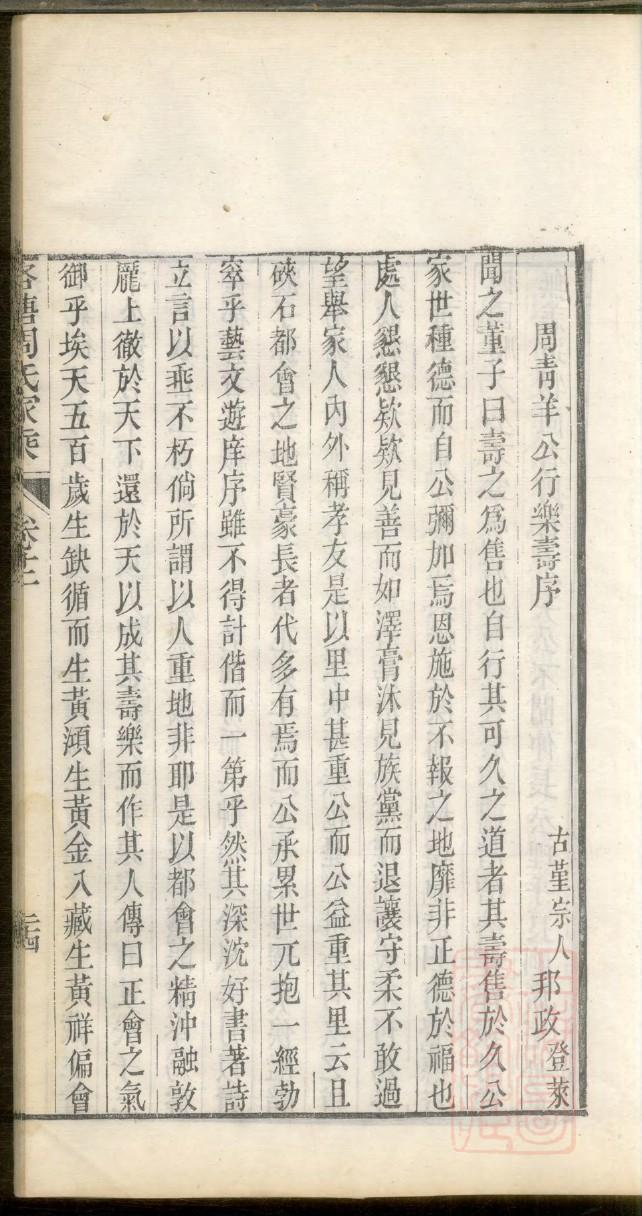 周青羊公行樂壽序
古堇宗人邦政登萊
聞之董子曰壽之為售也自行其可久之道者其壽售於久公
家世種德而自公彌加焉恩施於不報之地靡非正德於福也
處人懇懇欵欵見善而如澤膏沐見族黨而退讓守柔不敢過
望舉家人內外稱孝友是以里中甚重公而公益重其里云且
硤石都會之地賢豪長者代多有焉而公承累世亢抱一經勃
窣乎藝文遊庠序雖不得計偕而一第乎然其深沈好書著詩
立言以垂不朽倘所謂以人重地非耶是以都會之精沖融敦
龎上徹於天下還於天以成其壽樂而作其人傳曰正會之氣
御乎埃天五百歲生缺循而生黃澒生黃金入藏生黃祥偏會
洛塘周氏家乘
卷十二
三四